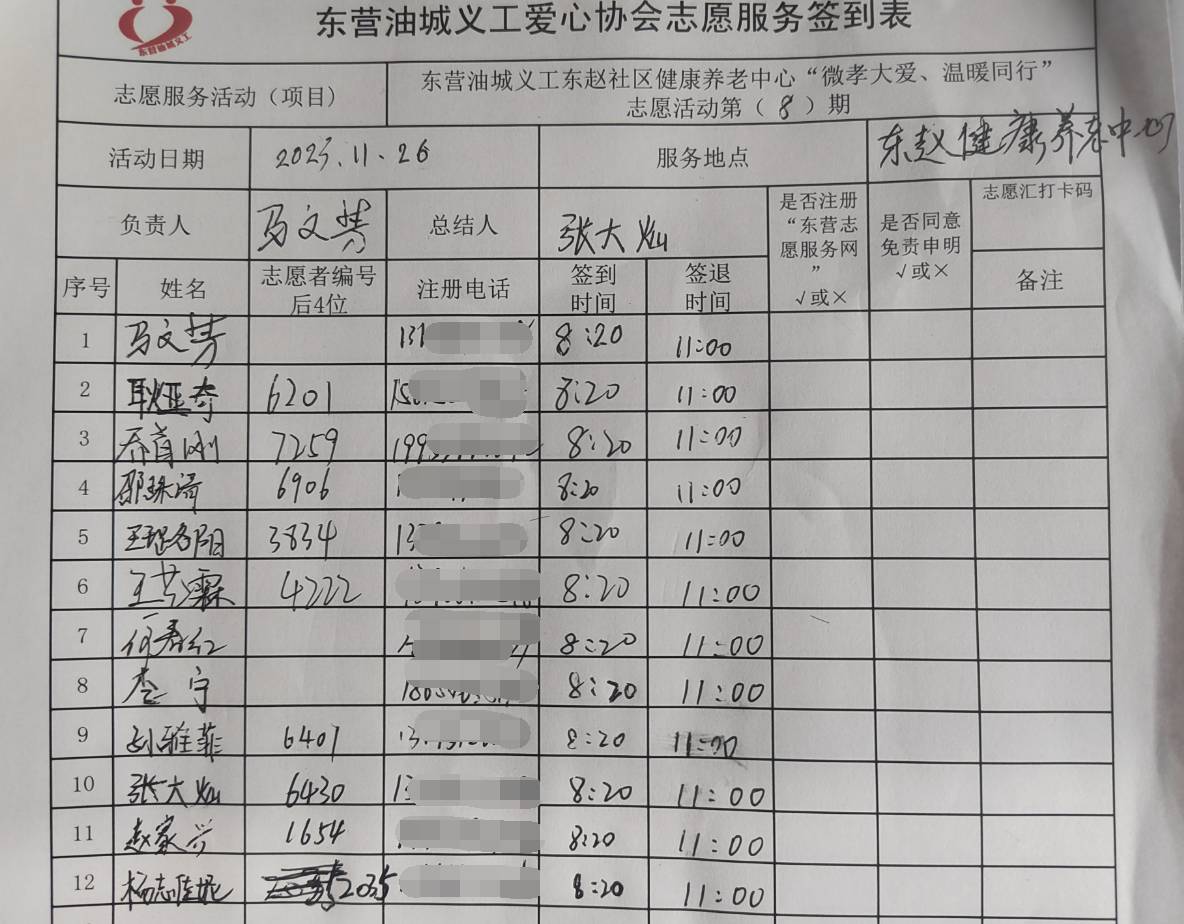 东营油城义工
东营油城义工爱心协会志愿服务签到表
志愿服务活动（项目） 东营油城义工东赵社区健康养老中心“微孝大爱、温暖同行”
志愿活动第（8）期
活动日期 2023.11.26 服务地点 东赵健康养老中心
负责人 马文慧 总结人 张大灿 是否注册“东营志愿服务网” √或× 是否同意免责申明 √或× 志愿汇打卡码
序号 姓名 志愿者编号后4位 注册电话 签到时间 签退时间 备注
1 马文慧 8:20 11:00
2 耿亚奇 6201 8:20 11:00
3 乔肖刚 7259 199 8:20 11:00
4 6906 8:20 11:00
5 3834 13 8:20 11:00
6 4222 8:20 11:00
7 何春红 8:20 11:00
8 李宁 8:20 11:00
9 刘雅菲 6401 13 8:20 11:00
10 张大灿 6430 13 8:20 11:00
11 赵家兴 1654 8:20 11:00
12 杨志佳妮 2035 8:20 11:00